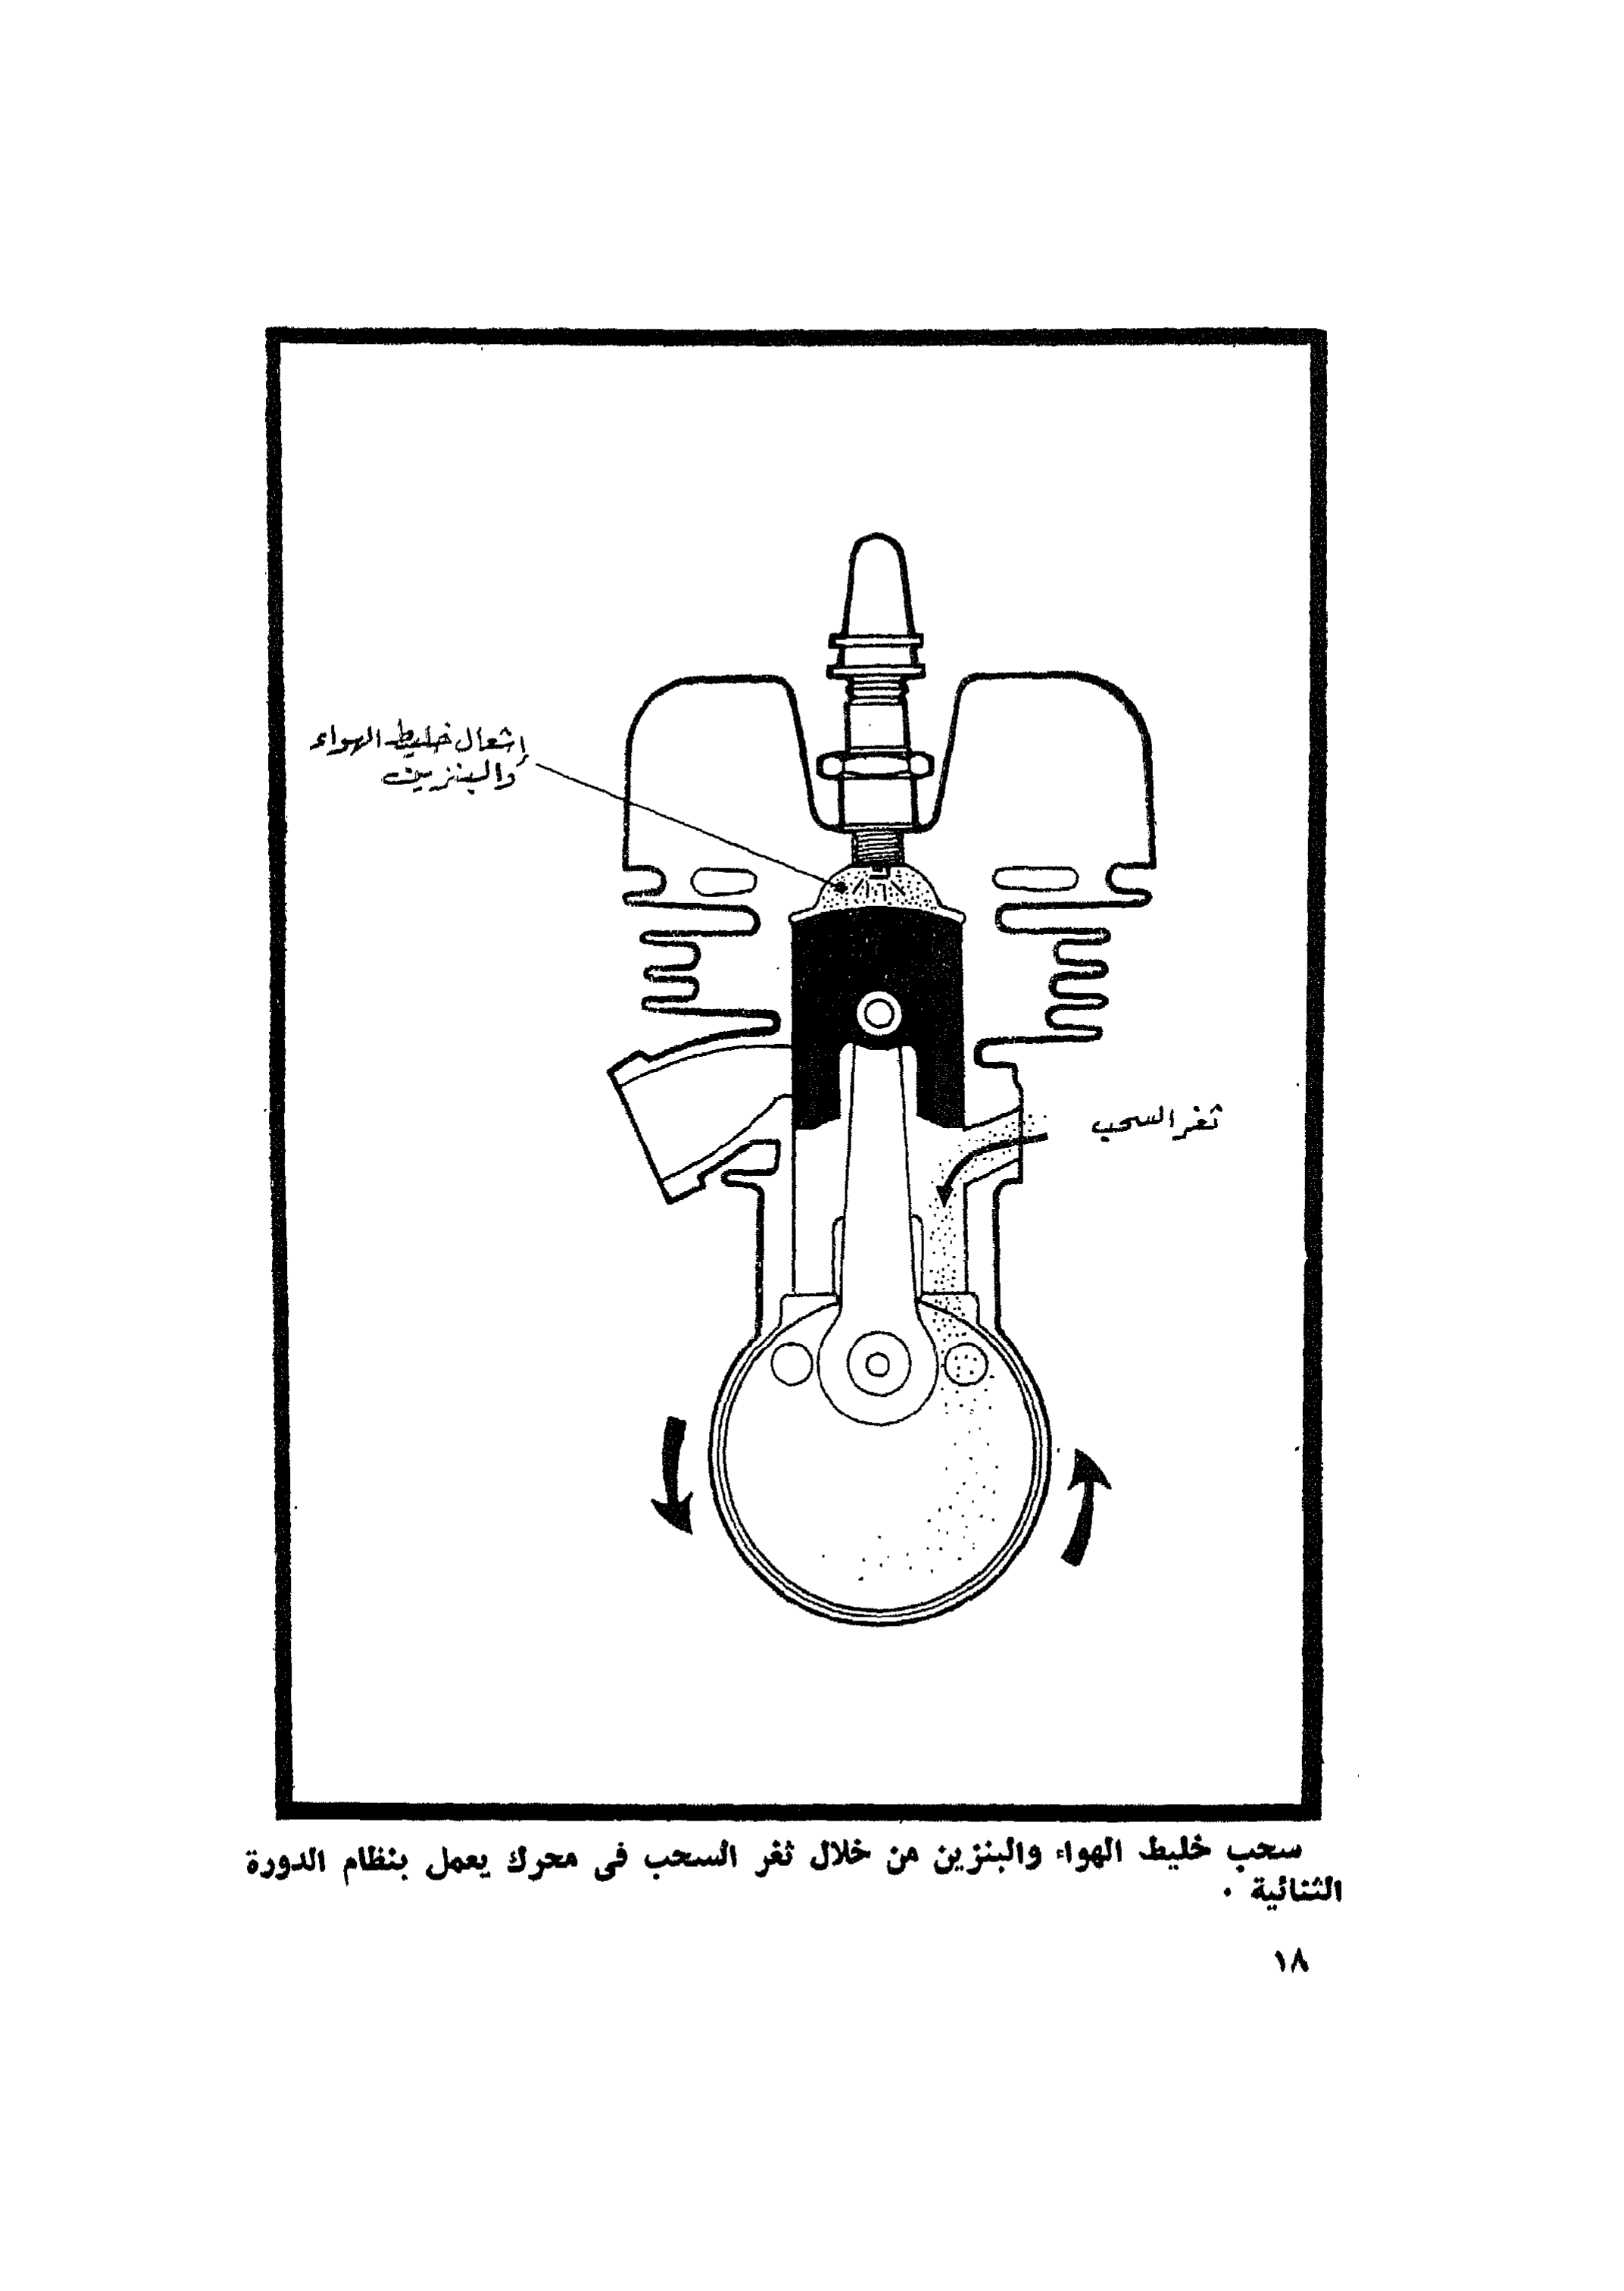 إشعال خليط الهواء
والبنزين
ثغر السحب
سحب خليط الهواء والبنزين من خلال ثغر السحب فى محرك يعمل بنظام الدورة
الثنائية .
١٨